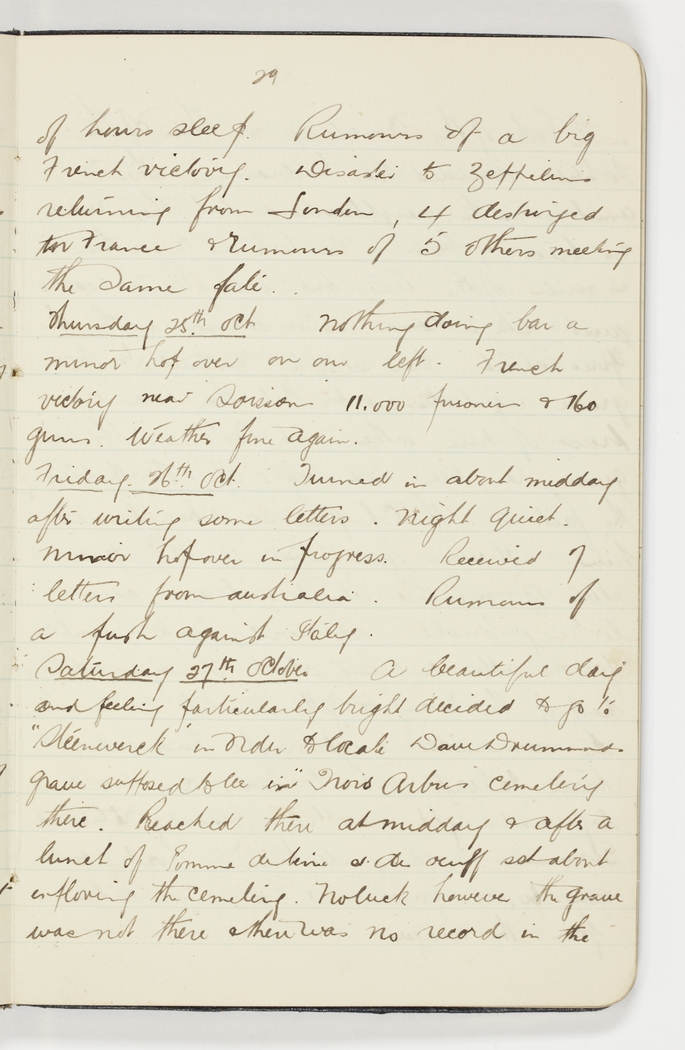 29
of hours sleep. Rumours of a big
French victory. Disaster to Zeppelins
returning from London, 4 destroyed
France & Rumours of 5 others meeting
the same fate.
Thursday 25th Oct Nothing doing bar a
minor hop over on our left. French
victory near Soissons 11.000 prisoners & 160
guns. Weather fine again.
Friday. 26th Oct. Turned in about midday
after writing some letters. Night Quiet.
Minor hopover in progress. Received 7
letters from australia. Rumours of
a push against Italy.
Saturday 27th October. A beautiful day
and feeling particularly bright decided to go to
"Steenwerck" in order to locate Dave Drummonds
grave supposed to be in "Trois Arbres cemetery
there. Reached there at midday & after a
lunch of Pomme de terre & des oeuff set about
exploring the cemetery. No luck however the grave
was not there & there was no record in the